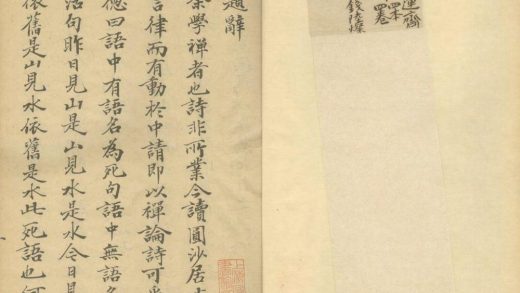 蓮齋
四本
四卷
錢陸燦
題辭
學禪者也詩非所業今讀圓沙居
言律而有動於中請即以禪論詩可
德曰語中有語名為死句語中無語名
活句昨日見山是山見水是水今日見
依舊是山見水依舊是水此死語也何